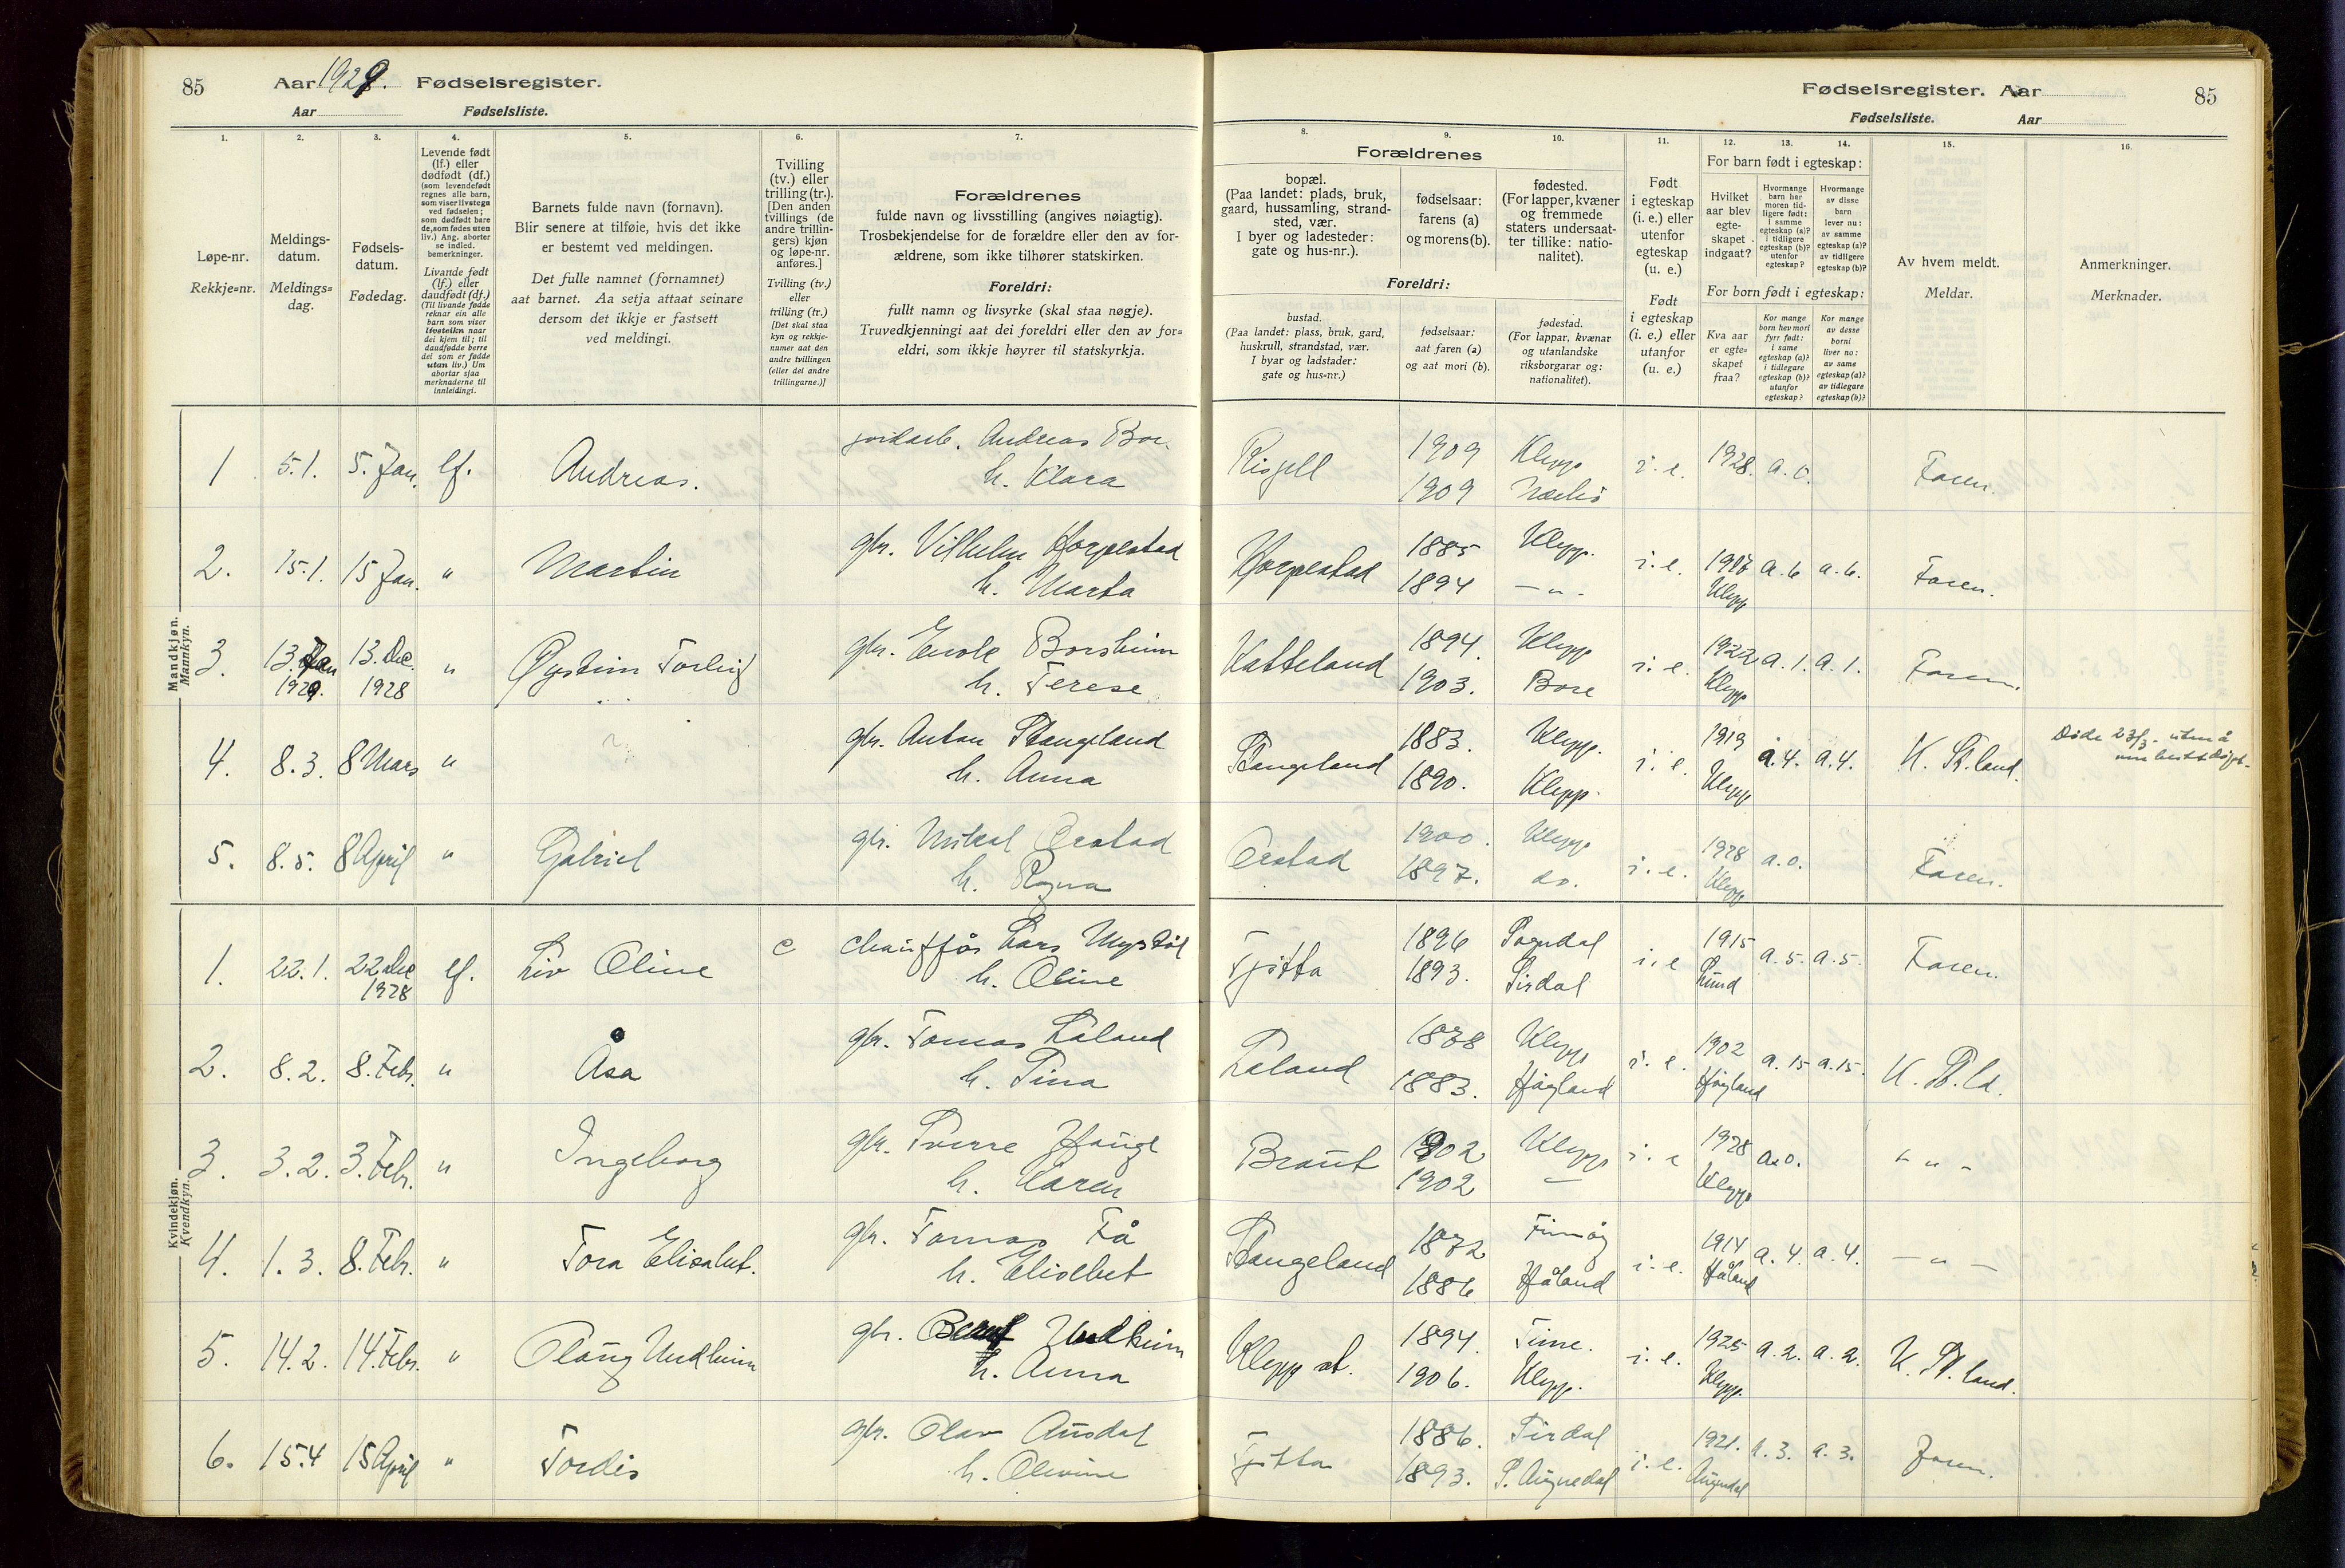 85 Aar 1929. Fødselsregister.
Aar Fødselsliste.
Fødselsregister. Aar 85
Fødselsliste. Aar
1. 2. 3. 4. 5. 6. 7.
Løpe-nr.
Rekkje=nr.
Meldings-
datum.
Meldings=
dag.
Fødsels-
datum.
Fødedag.
Levende født
(lf.) eller
dødfødt (df.)
(som levendefødt
regnes alle barn,
som viser livstegn
ved fødselen;
som dødfødt bare
de, som fødes uten
liv.) Ang. aborter
se indled.
bemerkninger.
Livande født
(lf.) eller
daudfødt (df.)
(Til livande fødde
reknar ein alle
barn som viser
livsteikn naar
dei kjem til; til
daudfødde berre
dei som er fødde
utan liv.) Um
abortar sjaa
merknaderne til
innleidingi.
Barnets fulde navn (fornavn).
Blir senere at tilføie, hvis det ikke
er bestemt ved meldingen.
Det fulle namnet (fornamnet)
aat barnet. Aa setja attaat seinare
dersom det ikkje er fastsett
ved meldingi.
Tvilling
(tv.) eller
trilling (tr.).
[Den anden
tvillings (de
andre trillin-
gers) kjøn
og løpe-nr.
anføres.]
Tvilling (tv.)
eller
trilling (tr.)
[Det skal staa
kyn og rekkje-
numer aat den
andre tvillingen
(eller dei andre
trillingarne.)]
Forældrenes
fulde navn og livsstilling (angives nøiagtig).
Trosbekjendelse for de forældre eller den av for-
ældrene, som ikke tilhører statskirken.
Foreldri:
fullt namn og livsyrke (skal staa nøgje).
Truvedkjenningi aat dei foreldri eller den av for=
eldri, som ikkje høyrer til statskyrkja.
8. 9. 10. 11. 12. 13. 14. 15. 16.
Forældrenes
bopæl.
(Paa landet: plads, bruk,
gaard, hussamling, strand-
sted, vær.
I byer og ladesteder:
gate og hus-nr.).
fødselsaar:
farens (a)
og morens (b).
fødested.
(For lapper, kvæner
og fremmede
staters undersaat-
ter tillike: natio-
nalitet).
Foreldri:
bustad.
(Paa landet: plass, bruk, gard,
huskrull, strandstad, vær.
I byar og ladstader:
gate og hus=nr.)
fødselsaar:
aat faren (a)
og aat mori (b).
fødestad.
(For lappar, kvænar
og utanlandske
riksborgarar og:
nationalitet).
Født
i egteskap
(i. e.) eller
utenfor
egteskap
(u. e.)
Født
i egteskap
(i. e.) eller
utanfor
(u. e.)
For barn født i egteskap:
Hvilket
aar blev
egte-
skapet
indgaat?
Hvormange
barn har
moren tid-
ligere født:
i samme
egteskap (a)?
i tidligere
egteskap (b)?
utenfor
egteskap?
Hvormange
av disse
barn
lever nu:
av samme
egteskap (a)?
av tidligere
egteskap (b)?
For born født i egteskap:
Kva aar
er egte=
skapet
fraa?
Kor mange
born hev mori
fyrr født:
i same
egteskap (a)?
i tidlegare
egteskap (b)?
utanfor
egteskap?
Kor mange
av desse
borni
liver no:
av same
egteskap (a)?
av tidlegare
egteskap (b)?
Av hvem meldt.
Meldar.
Anmerkninger.
Merknader.
Mandkjøn.
Mannkyn.
1 5.1. 5. Jan. lf. Andreas. jordarb. Andreas Bore 1909 Klepp i. e. 1928. a. 0. Faren.
h. Klara 1909
2. 15.1. 15 Jan. " Martin gbr. Vilhelm Horpestad Horpestad 1885 Klepp. i. e. a. 6 a. 6. Faren.
h. Marta 1894 — " - Klepp
3. 13. Jan 1929. 13. Dec. 1928 " Øystein Torleif gbr. Enok Borsheim Katteland 1894. Klepp i. e. 1922 a. 1. a. 1. Faren.
h. Terese 1903. Bore Klepp
4. 8.3. 8 Mars " gbr. Anton Stangeland Stangeland 1883. Klepp. i. e. 1919 a. 4. a. 4. K. St.land. Døde 23/3
h. Anna 1890. Klepp. Klepp
5. 8.5. 8 April " Gabriel gbr. Mikal Orstad Orstad 1900. Klepp i. e. 1928 a. 0. Faren.
h. Ragna 1897. do. Klepp
Kvindekjøn.
Kvendkyn.
1. 22.1. 22 Dec 1928 lf. Liv Oline chauffør Lars Tjøtta 1896 Sogndal i. e 1915 a. 5. a. 5. Faren.
h. Oline 1893. Sirdal Lund
2. 8.2. 8. Febr. " Åsa gbr. Tomas Laland Laland 1878 Klepp i. e. 1902 a. 15 a. 15. K.
h. Tina 1883. Høgland Høgland
3. 3.2. 3. Febr. " Ingeborg gbr. Sverre Hauge Braut 1902 Klepp i. e 1928 a. 0. - " -
h. Karen 1902 — Klepp
4. 1.3. 8. Febr. " Tora Elisabet. gbr. Tomas Stangeland 1872 Finnøy i. e. 1914 a. 4. a. 4. — " —
h. Elisebet 1886 Håland Håland
5. 14.2. 14. Febr. " Olaug Undheim gbr. Undheim Klepp st. 1894. Time. i. e. 1925 a. 2. a. 2. K. St.land.
h. Anna 1906. Klepp. Klepp.
6. 15.4 15 April " Tordis gbr. Olav Ausdal Tjøtta 1886. Sirdal i. e. 1921. a. 3. a. 3. Faren.
h. Olivine 1893.